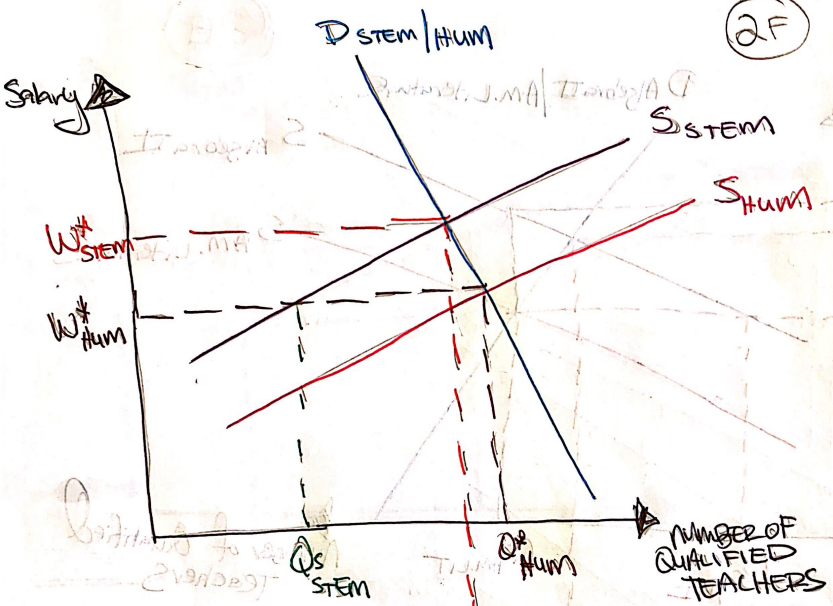 D STEM/HUM
2F
Salary
S STEM
S HUM
W* STEM
W* HUM
Qs STEM
Q* HUM
NUMBER OF
QUALIFIED
TEACHERS